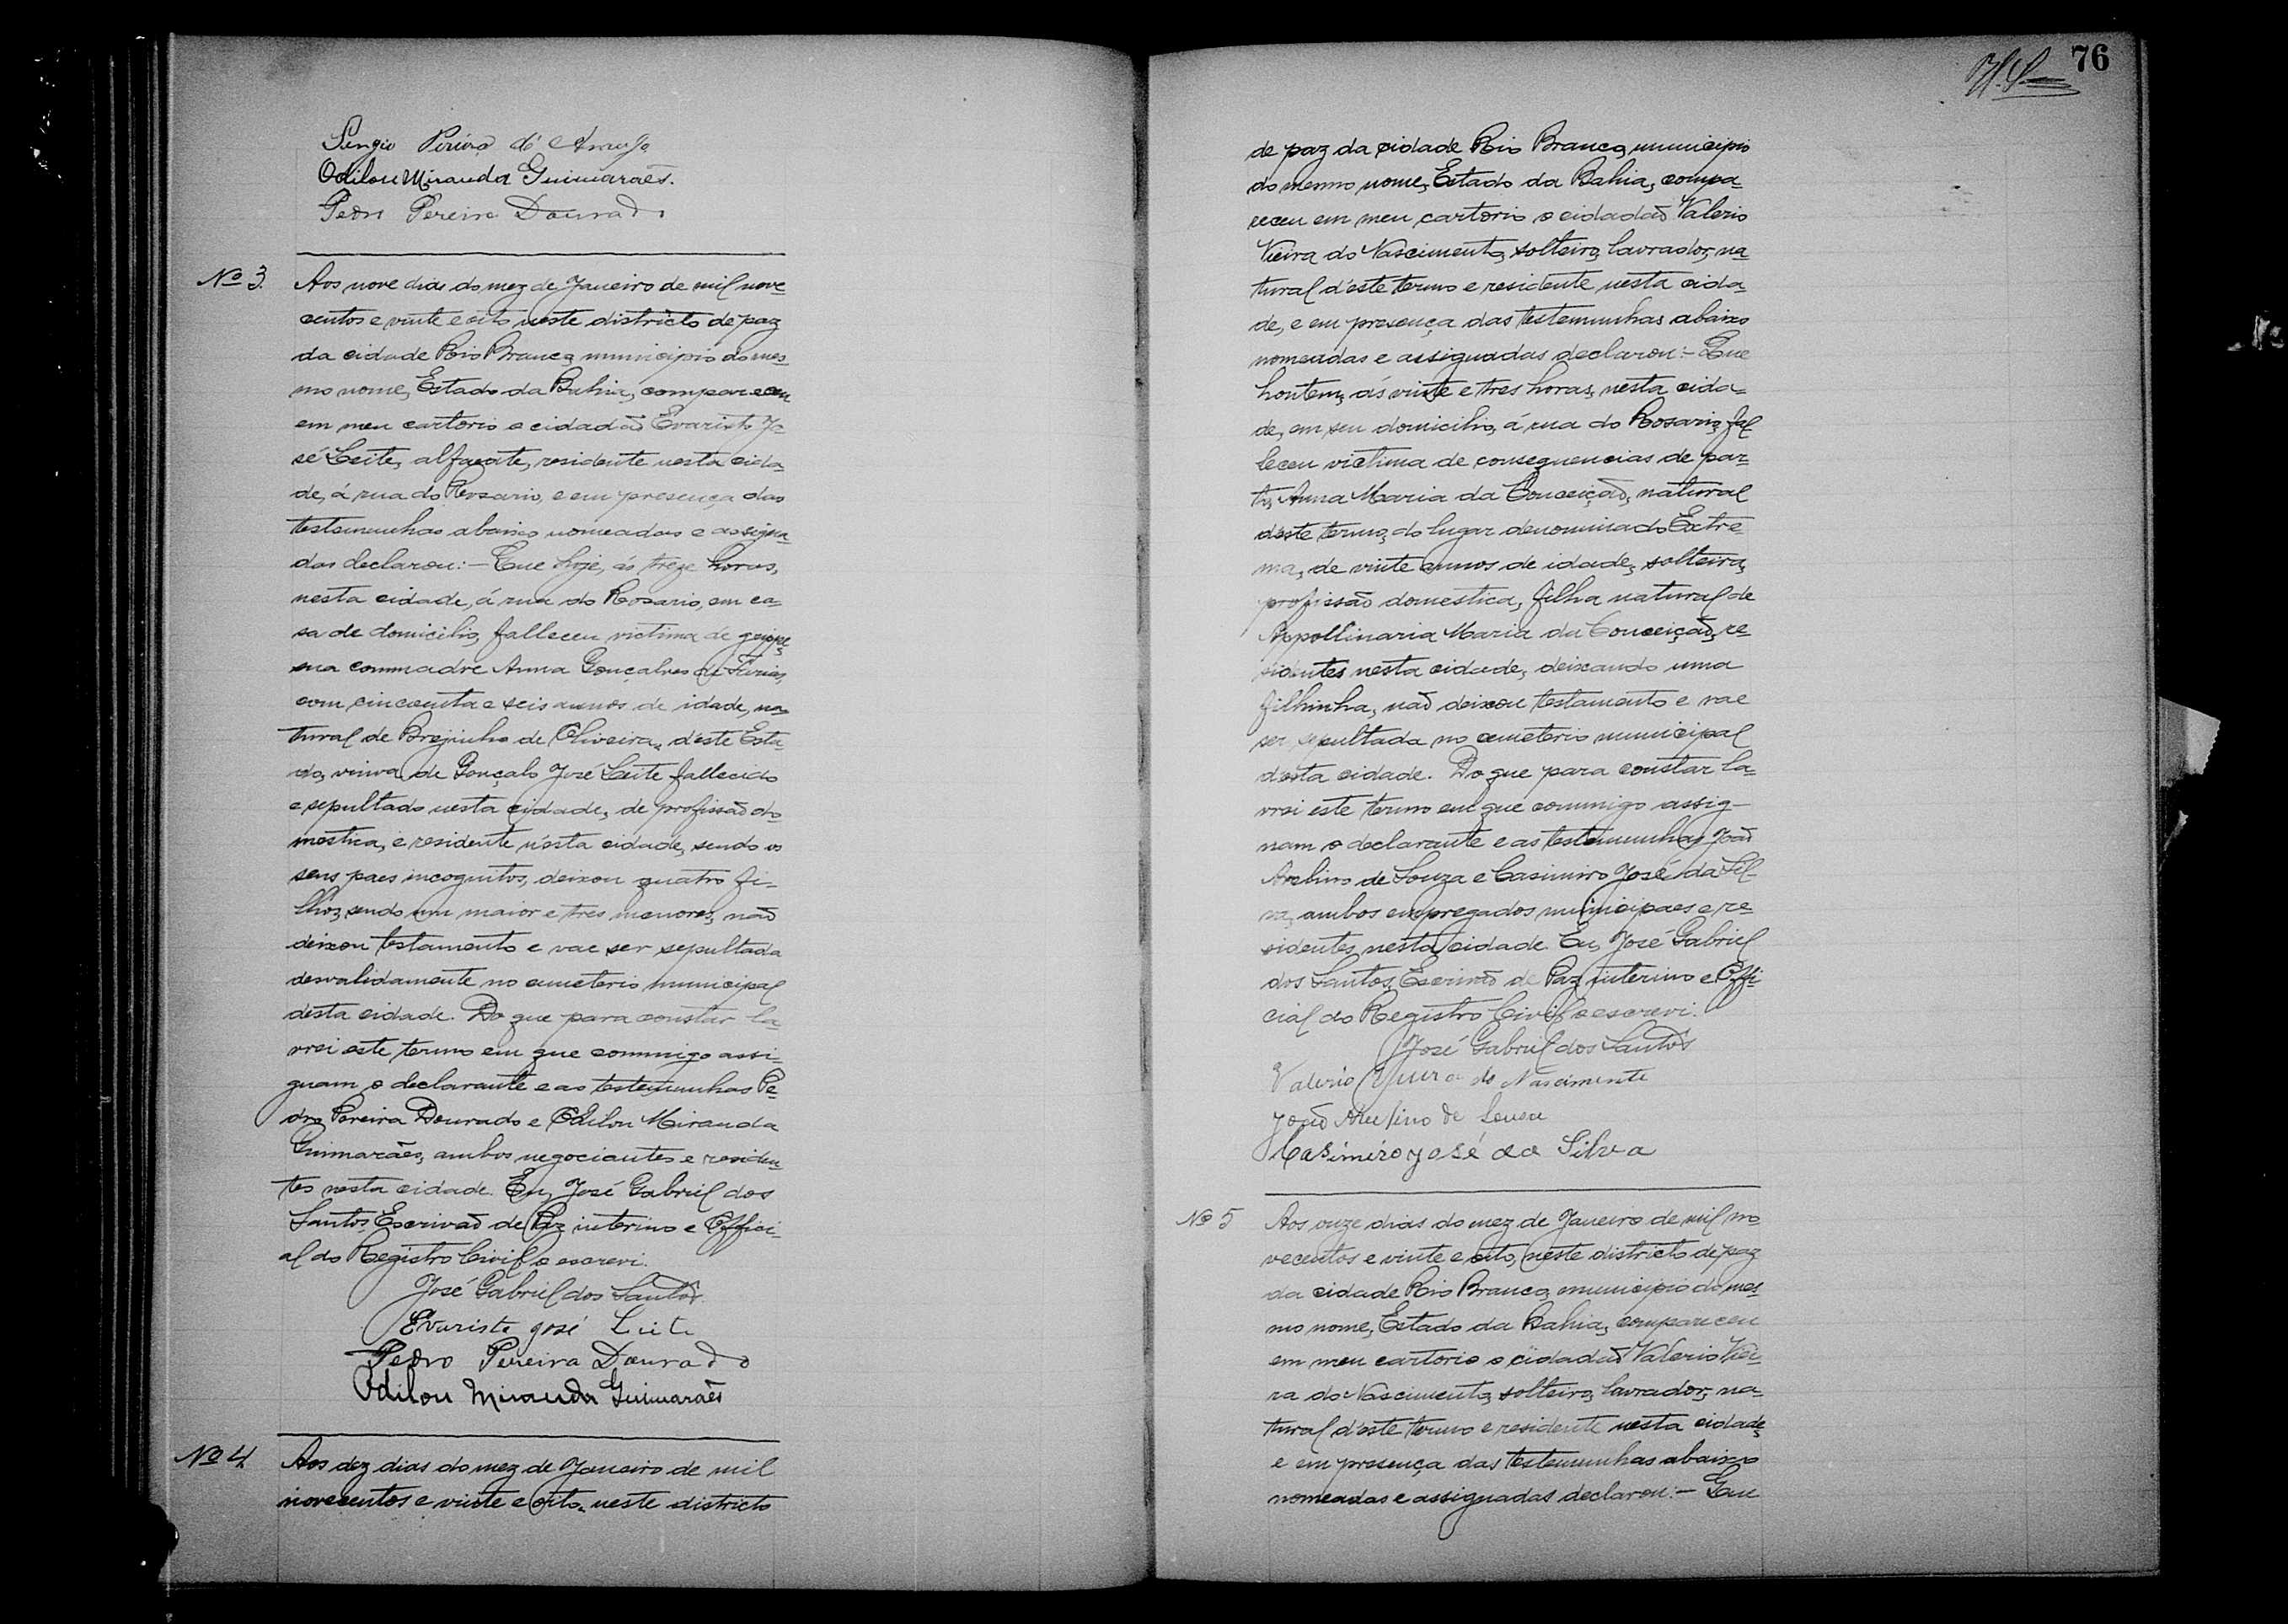 76
Pereira d'
Odilon Miranda Guimarães.
Pedro Pereira Dourado
Nº 3.
Aos nove dias do mez de Janeiro de mil nove-
centos e vinte e oito neste districto de paz
da cidade Rio Branco, municipio do mes-
mo nome, Estado da Bahia, compareceu
em meu cartorio o cidadaõ Evaristo Jo-
sé Leite, alfaiate, residente nesta cida-
de, á rua do Rosario, e em presença das
testemunhas abaixo nomeadas e assigna-
das declarou:- Que hoje, ás treze horas,
nesta cidade, á rua do Rosario, em ca-
sa de domicilio, falleceu victima de grippe,
sua commadre Anna Gonçalves de
com cincoenta e seis annos de idade, na-
tural de Brejinho de Oliveira, d'este Esta-
do, viuva de Gonçalo José Leite fallecido
e sepultado nesta cidade, de profissaõ do-
mestica, e residente n'esta cidade, sendo os
seus paes incognitos, deixou quatro fi-
lhos, sendo um maior e tres menores, naõ
deixou testamento e vae ser sepultada
desvalidamente no cemeterio municipal
desta cidade. Do que para constar la-
vrei este termo em que commigo assi-
gnam o declarante e as testemunhas Pe-
dro Pereira Dourado e Odilon Miranda
Guimarães, ambos negociantes e residen-
tes nesta cidade. Eu, José Gabriel dos
Santos, Escrivaõ de Paz interino e Offici-
al do Registro Civil o escrevi.
José Gabriel dos Santos
Evaristo José Leite
Pedro Pereira Dourado
Odilon Miranda Guimarães
Nº 4.
Aos dez dias do mez de Janeiro de mil
novecentos e vinte e oito, neste districto
de paz da cidade Rio Branco, municipio
do mesmo nome, Estado da Bahia, compa-
receu em meu cartorio o cidadaõ Valerio
Vieira do Nascimento, solteiro, lavrador, na-
tural d'este termo e residente nesta cida-
de, e em presença das testemunhas abaixo
nomeadas e assignadas declarou:- Que
hontem, ás vinte e tres horas, nesta cida-
de, em seu domicilio, á rua do Rosario, fal
leceu victima de consequencias de par-
to, Anna Maria da Conceiçaõ, natural
d'este termo, do lugar denominado Extre-
ma, de vinte annos de idade, solteira,
profissaõ domestica, filha natural de
Appollinaria Maria da Conceiçaõ, re-
sidentes nesta cidade, deixando uma
filhinha, naõ deixou testamento e vae
ser sepultada no cemeterio municipal
desta cidade. Do que para constar la-
vrei este termo em que commigo assig-
nam o declarante e as testemunhas João
Avelino de Souza e Casimiro José da Sil-
va, ambos empregados municipaes e re-
sidentes nesta cidade Eu, José Gabriel
dos Santos, Escrivaõ de Paz interino e Offi-
cial do Registro Civil o escrevi.
José Gabriel dos Santos
Valerio Vieira do Nascimento
João Avelino de Souza
Casimiro José da Silva
Nº 5
Aos onze dias do mez de Janeiro de mil no
vecentos e vinte e oito, neste districto de paz
da cidade Rio Branco, municipio do mes-
mo nome, Estado da Bahia, compareceu
em meu cartorio o cidadaõ Valerio Viei-
ra do Nascimento, solteiro, lavrador, na-
tural d'este termo e residente nesta cidade,
e em presença das testemunhas abaixo
nomeadas e assignadas declarou:- Que